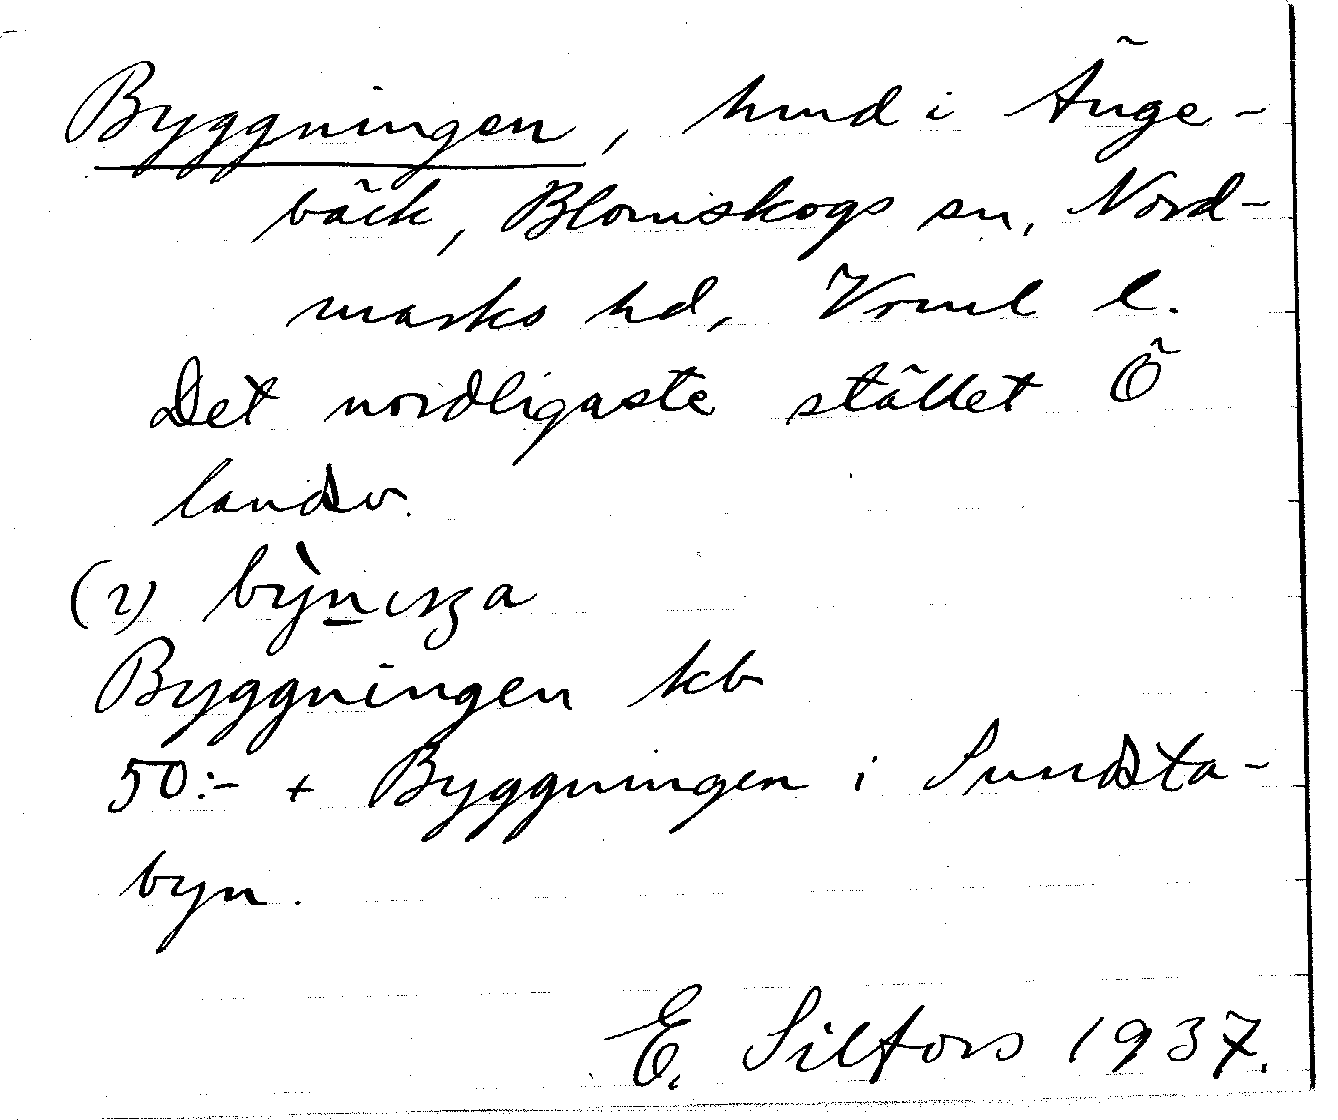 Byggningen, hmd i Änge-
bäck, Blomskogs sn, Nord-
marks hd, Vrml l.
Det nordligaste stället Ö
landsv.
(v) bỳnıŋa
Byggningen kb
50:- + Byggningen i Sundsta-
byn.
E. Silfors 1937.